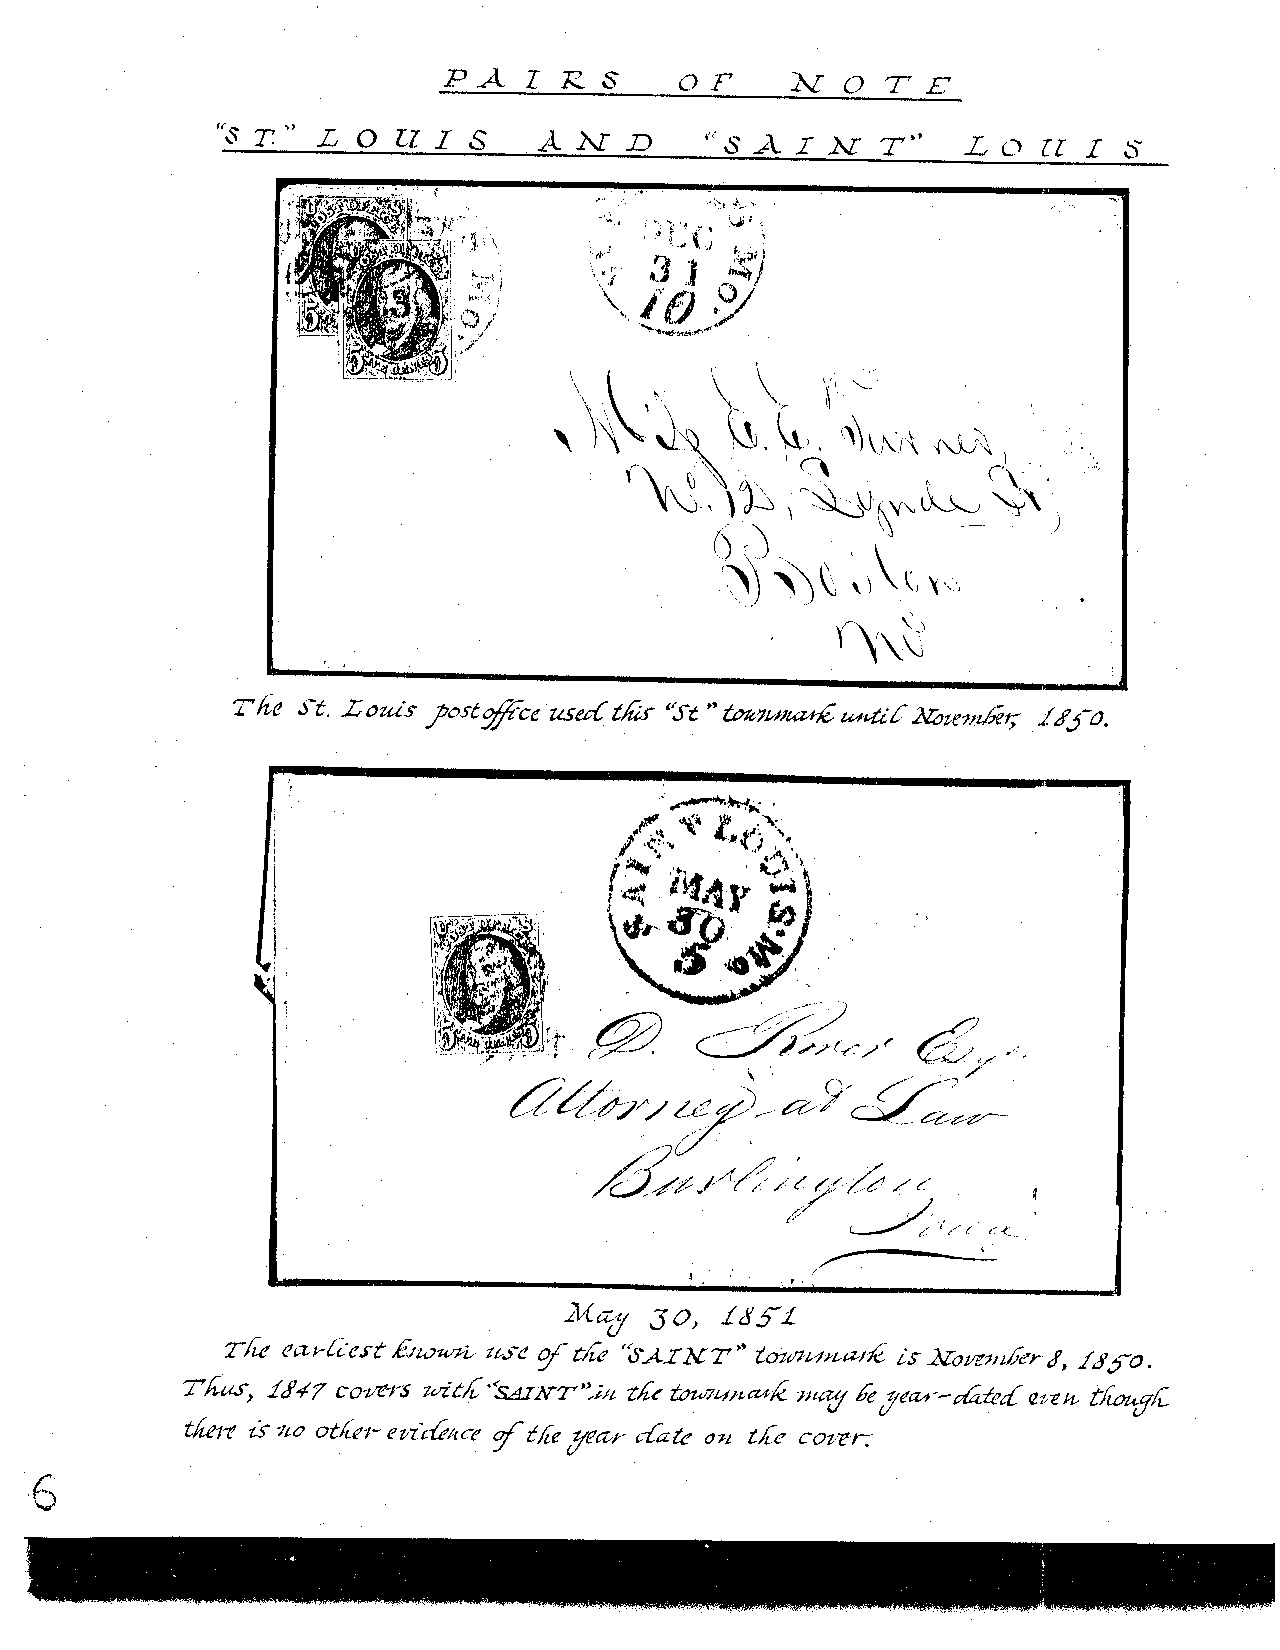 PAIRS OF NOTE
"ST." LOUIS AND "SAINT" LOUIS
DEC
31
10
MO.
E. E. Turner,
No. 12, Lynde St,
Boston
Ms
The St. Louis post office used this "St" townmark until November, 1850.
SAINT LOUIS. Mo.
MAY
30
5
D. Rorer Esqr.
Attorney at Law
Burlington
Iowa
May 30, 1851
The earliest known use of the "SAINT" townmark is November 8, 1850.
Thus, 1847 covers with "SAINT" in the townmark may be year-dated even though
there is no other evidence of the year date on the cover.
6